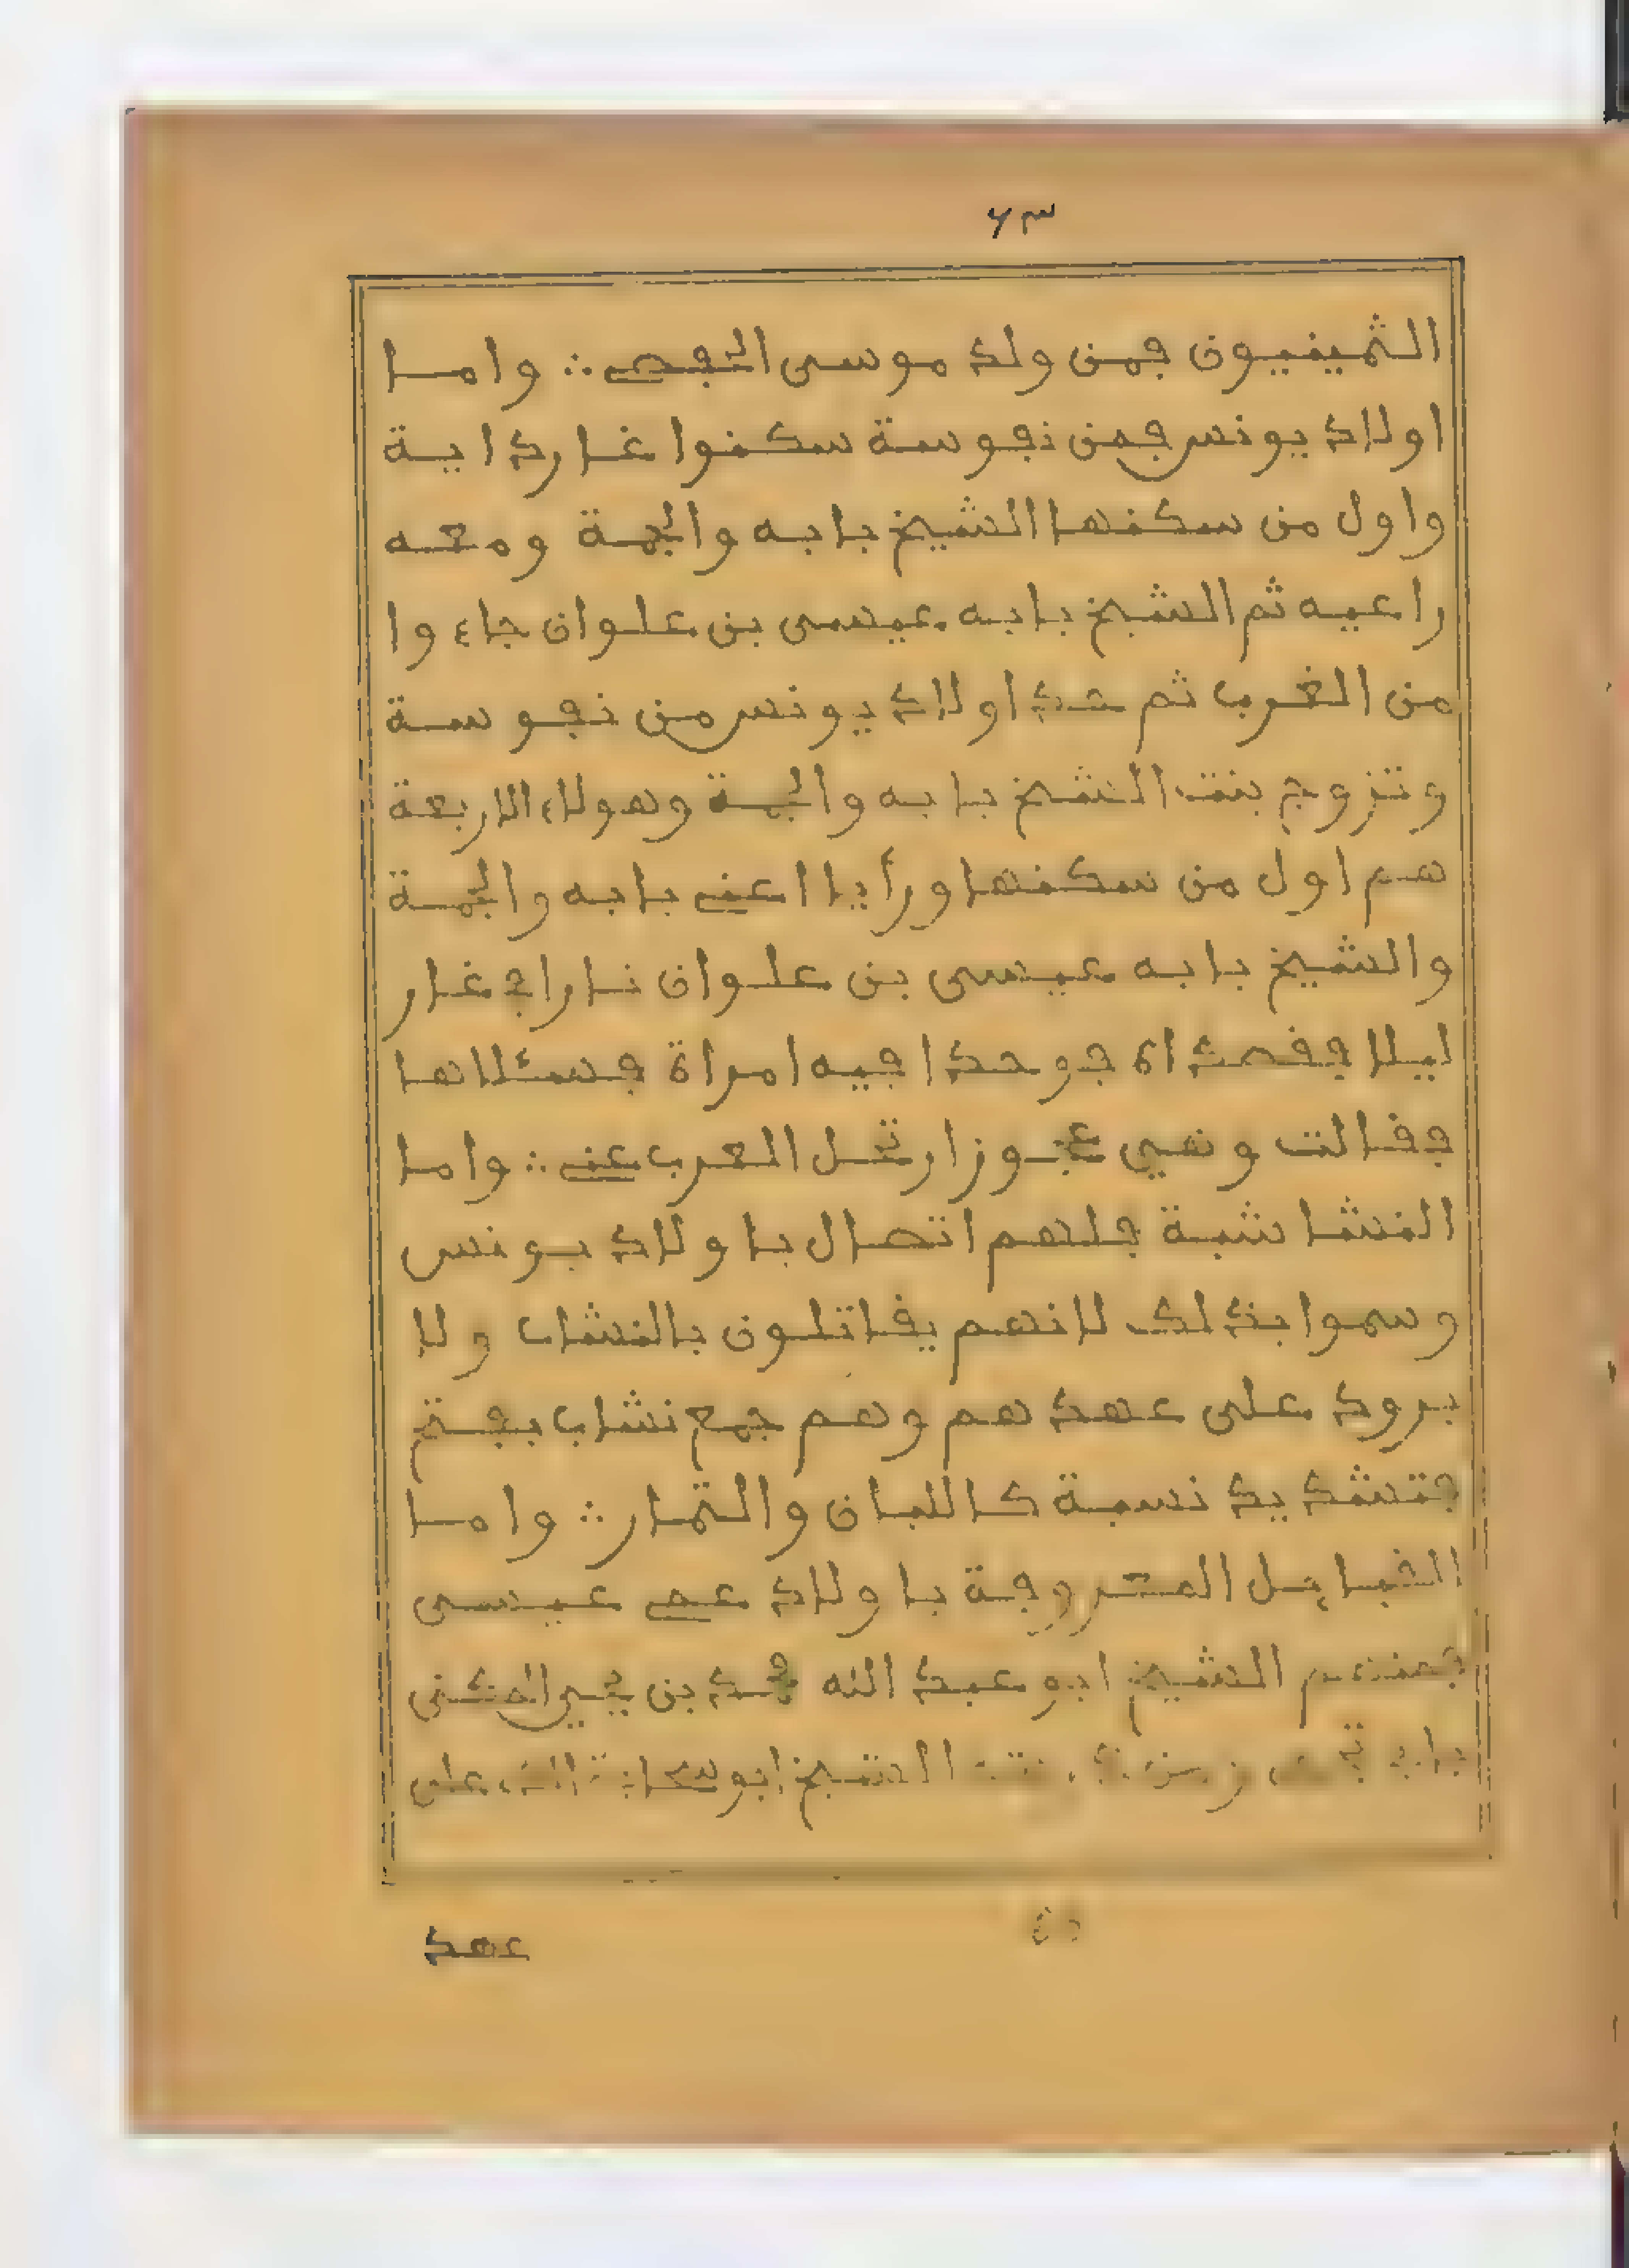 ٦٣
الثمينيون فمن ولد موسى الحفصي ؞ واما
اولاد يونس فمن نفوسة سكنوا غارداية
واول من سكنها الشيخ بابه والجمة ومعه
راعيه ثم الشيخ بابه عيسى بن علوان جاءوا
من الغرب ثم جد اولاد يونس من نفوسة
وتزوج بنت الشيخ بابه والجمة وهولاء الاربعة
هم اول من سكنها ورأيا اعني بابه والجمة
والشيخ بابه عيسى بن علوان نارا في غار
ليلا فقصداه فوجدا فيه امراة فسئلاها
فقالت وهي عجوز ارتحل العرب عني ؞ واما
النشاشبة فلهم اتصال باولاد يونس
وسموا بذلك لانهم يقاتلون بالنشاب ولا
برود على عهدهم وهم جمع نشاب بفتح
فتشديد نسبة كاللبان والتمار ؞ واما
القبايل المعروفة باولاد عمي عيسى
فمنهم الشيخ ابو عبد الله محمد بن يحيى المكنى
الشيخ ابو على
عهد